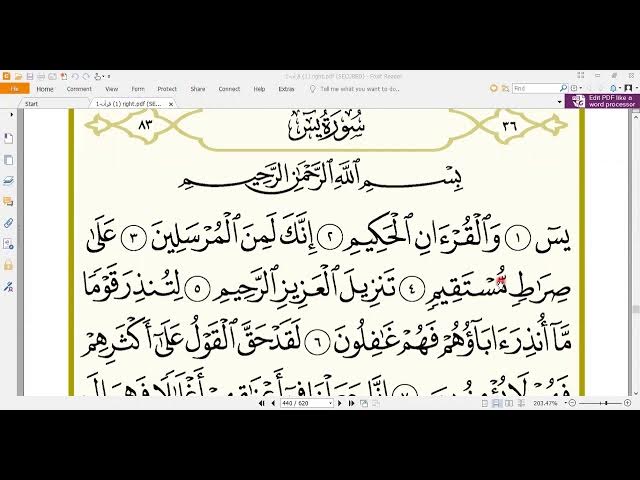 1قرآنة (1) right.pdf (SECURED) - Foxit Reader
File Home Comment View Form Protect Share Connect Help Extras Tell me what you want to do... Find
Start 1قرآنة (1) right.pdf (SE... ×
Edit PDF like a word processor
٣٦ سُورَةُ يسٓ ٨٣
بِسْمِ ٱللَّهِ ٱلرَّحْمَٰنِ ٱلرَّحِيمِ
يسٓ ١ وَٱلْقُرْءَانِ ٱلْحَكِيمِ ٢ إِنَّكَ لَمِنَ ٱلْمُرْسَلِينَ ٣ عَلَىٰ
صِرَٰطٍ مُّسْتَقِيمٍ ٤ تَنزِيلَ ٱلْعَزِيزِ ٱلرَّحِيمِ ٥ لِتُنذِرَ قَوْمًا
مَّآ أُنذِرَ ءَابَآؤُهُمْ فَهُمْ غَٰفِلُونَ ٦ لَقَدْ حَقَّ ٱلْقَوْلُ عَلَىٰٓ أَكْثَرِهِمْ
فَهُمْ لَا يُؤْمِنُونَ ٧ إِنَّا جَعَلْنَا فِىٓ أَعْنَٰقِهِمْ أَغْلَٰلًا فَهِىَ إِلَى
440 / 620 203.47%